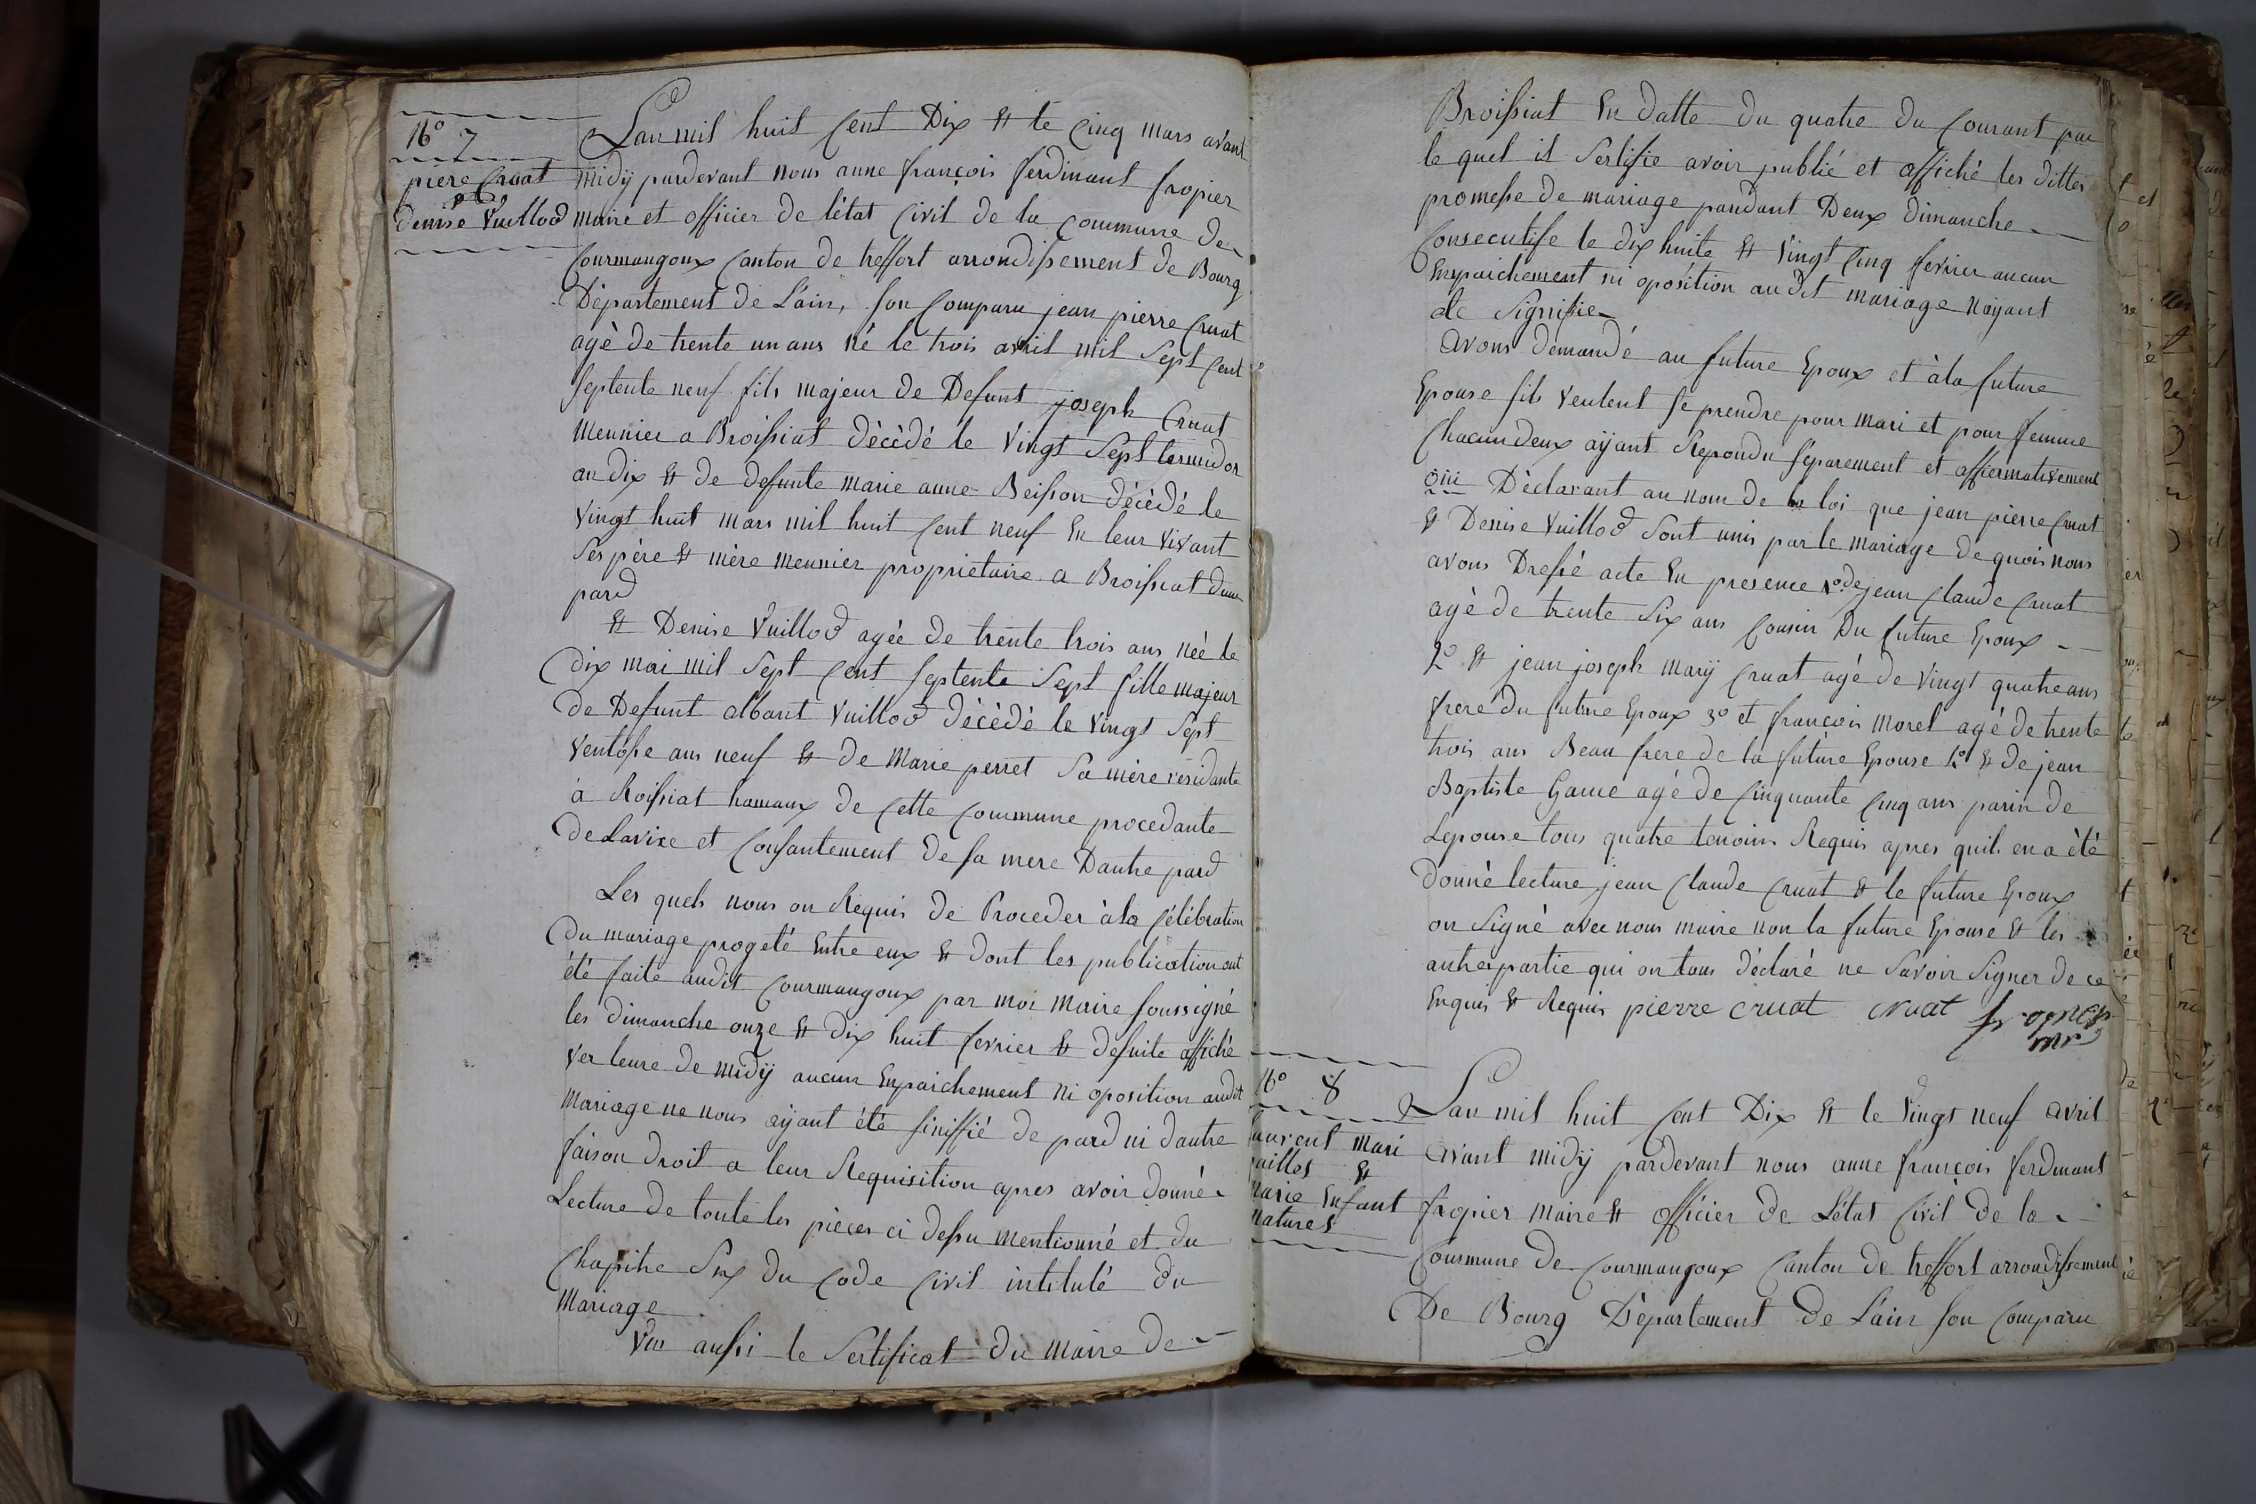 No 7
pierre Cruat
&
Denise Vuillod
Lan mil huit Cent Dix & le Cinq mars avant
midÿ pardevant nous anne françois ferdinant fropier
maire et officier de létat Civil de la Commune de
Courmangoux Canton de treffort arrondissement de Bourg
Département de Lain, son Comparu jean pierre Cruat
agè de trente un ans né le trois avril mil Sept Cent
septente neuf fils majeur de Defunt joseph Cruat
meunier a Broissiat dècèdè le Vingt Sept termidor
an dix & de defunte marie anne Beisson dècèdè le
Vingt huit mars mil huit Cent neuf En leur vivant
Ses père & mère meunier proprietaire a Broissiat dune
pard
& Denise Vuillod agée de trente trois ans née le
dix mai mil Sept Cent septente Sept fille majeur
de Defunt albant Vuillod dècèdè le vingt Sept
Ventose ans neuf & de Marie perret Sa mère residante
à Roissiat hamaux de Cette Commune procedante
de Lavixe et Consantement de sa mere Dautre pard
Les quels nous on Requis de Proceder à la Célébration
du mariage progeté Entre eux & dont les publication ont
été faite audit Courmangoux par moi Maire soussigné
les dimanche onze & dix huit fevrier & desuite affiché
ver leure de midÿ aucun Enpaichement ni oposition audit
mariage ne nous aÿant été sinissié de pard ni dautre
faison droit a leur Requisition apres avoir donné
Lecture de toute les pièces ci dessu mentionné et du
Chapitre Six du Code Civil intitulé du
mariage
Vu aussi le Sertificat du maire de
Broissiat En datte du quatre du Courant par
le quel il Sertifie avoir publié et affiché les dittes
promesse de mariage pandant Deux dimanche
Consecutife le dix huite & Vingt Cinq fevrier aucun
Enpaichement ni oposition audit mariage nayant
ete Signifie
avons demandé au future Epoux et à la future
Epouse sils veulent se prendre pour mari et pour femme
Chacun deux aÿant Repondu séparement et affiermativement
oüi Déclarant au nom de la loi que jean pierre Cruat
& Denise Vuillod Sont unis par le mariage de quoi nous
avons Dressé acte En presence 1o de jean Claude Cruat
agè de trente Six ans Cousin Du future Epoux
2o & jean joseph marÿ Cruat agé de Vingt quatre ans
frere du future Epoux 3o et françois morel agè de trente
trois ans Beau frere de la future Epouse 4o & de jean
Baptiste Game agè de Cinquante Cinq ans parin de
Lepouse tous quatre temoins Requis apres quil en a été
donnè lecture jean Claude Cruat & le future Epoux
on Signé avec nous maire non la future Epouse & les
autres partie qui on tous déclaré ne Savoir Signer de ce
Enquis & Requis pierre cruat cruat fropier
mre
No 8
Laurent mari
&
marie Enfant
natures
Lan mil huit Cent Dix & le Vingt neuf avril
avant midÿ pardevant nous anne françois ferdinant
fropier maire & officier de Létat Civil de la
Commune de Courmangoux Canton de treffort arrondissement
De Bourg Département de Lain son Comparu